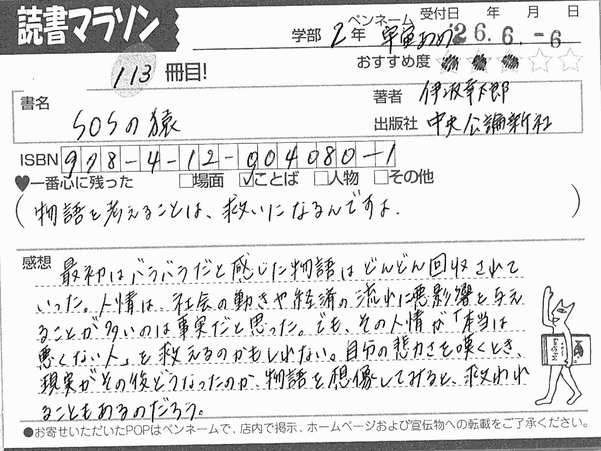 読書マラソン
学部 2年 ペンネーム 受付日 年 月 日
'26.6.-6
113冊目!
おすすめ度 ★★★☆☆
書名
SOSの猿
著者 伊坂幸太郎
出版社 中央公論新社
ISBN 978-4-12-004080-1
♥一番心に残った □場面 ☑ことば □人物 □その他
(物語を考えることは、救いになるんですよ.)
感想
最初はバラバラだと感じた物語はどんどん回収されて
いった。人情は、社会の動きや経済の流れに悪影響を与え
ることが多いのは事実だと思った。でも、その人情が「本当は
悪くない人」を救えるのかもしれない。自分の悲力さを嘆くとき、
現実がその後どうなったのか、物語を想像してみると、救われ
ることもあるのだろう。
●お寄せいただいたPOPはペンネームで、店内で掲示、ホームページおよび宣伝物への転載をご了承ください。